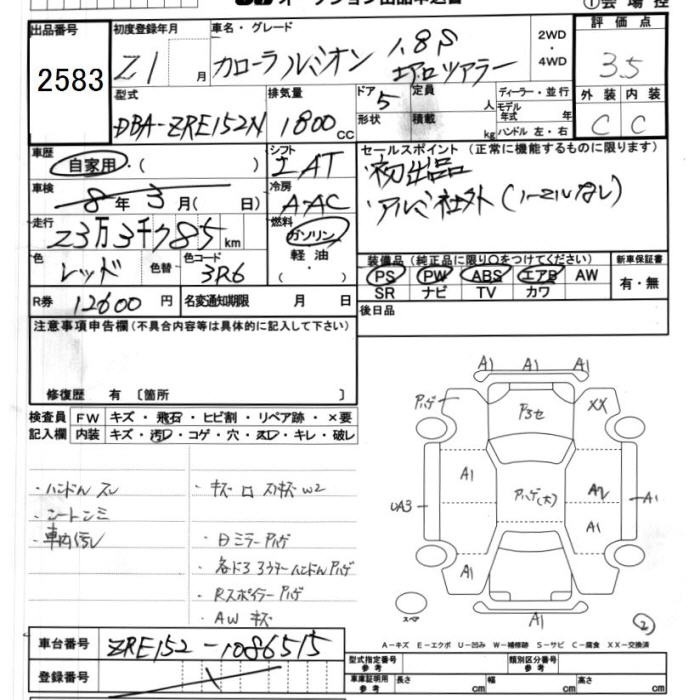 オークション出品申込書
①会場控
出品番号
2583
初度登録年月
21 月
車名・グレード
カローラルミオン 1.8S
エアロツアラー
2WD・4WD
評価点
3.5
型式
DBA-ZRE152N
排気量
1800 CC
ドア 5
形状
定員 人
積載 kg
ディーラー・並行
モデル年式 年
ハンドル 左・右
外装 内装
C C
車歴
自家用・( )
シフト
エAT
セールスポイント (正常に機能するものに限ります)
初出品
アルミ社外(ノーマルなし)
車検
8年3月( 日)
冷房
AAC
走行
23万3千985 km
燃料
ガソリン
軽油
・( )
色
レッド 色替
色コード
3R6
装備品 (純正品に限り○をつけてください)
PS PW ABS エアB AW
SR ナビ TV カワ
新車保証書
有・無
R券 12600 円
名変通知期限 月 日
後日品
注意事項申告欄 (不具合内容等は具体的に記入して下さい)
修復歴 有 〔箇所 〕
検査員記入欄
FW キズ・飛石・ヒビ割・リペア跡・×要
内装 キズ・汚レ・コゲ・穴・スレ・キレ・破レ
・ハンドルスレ
・シートシミ
・車内汚レ
・キズ ロ スリキズ W2
・日ミラーPハゲ
・各ドアアウターハンドルPハゲ
・RスポイラーPハゲ
・AWキズ
A1 A1 A1
Pハゲ XX
A1
Pハゲ(大)
A2
UA3
A1
A1
A1
A1
スペア
②
A-キズ E-エクボ U-凹み W-補修跡 S-サビ C-腐食 XX-交換済
車台番号 ZRE152-1086515
登録番号
型式指定番号 参考
類別区分番号 参考
車庫証明記入欄 参考
長さ cm 幅 cm 高さ cm